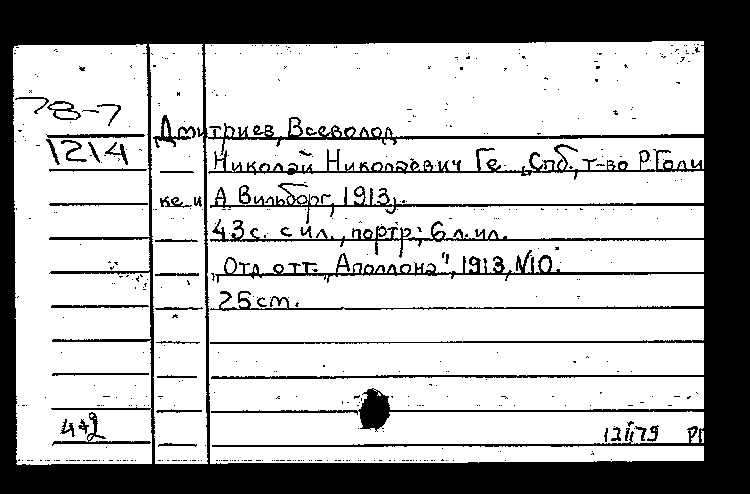 78-7
Дмитриев, Всеволод
1214
Николай Николаевич Ге. „Спб., т-во Р. Голи
ке и А. Вильборг, 1913„.
43 с. с ил., портр.; 6 л. ил.
„Отд. отт. „Аполлона", 1913, №10.
25 cm.
4+2